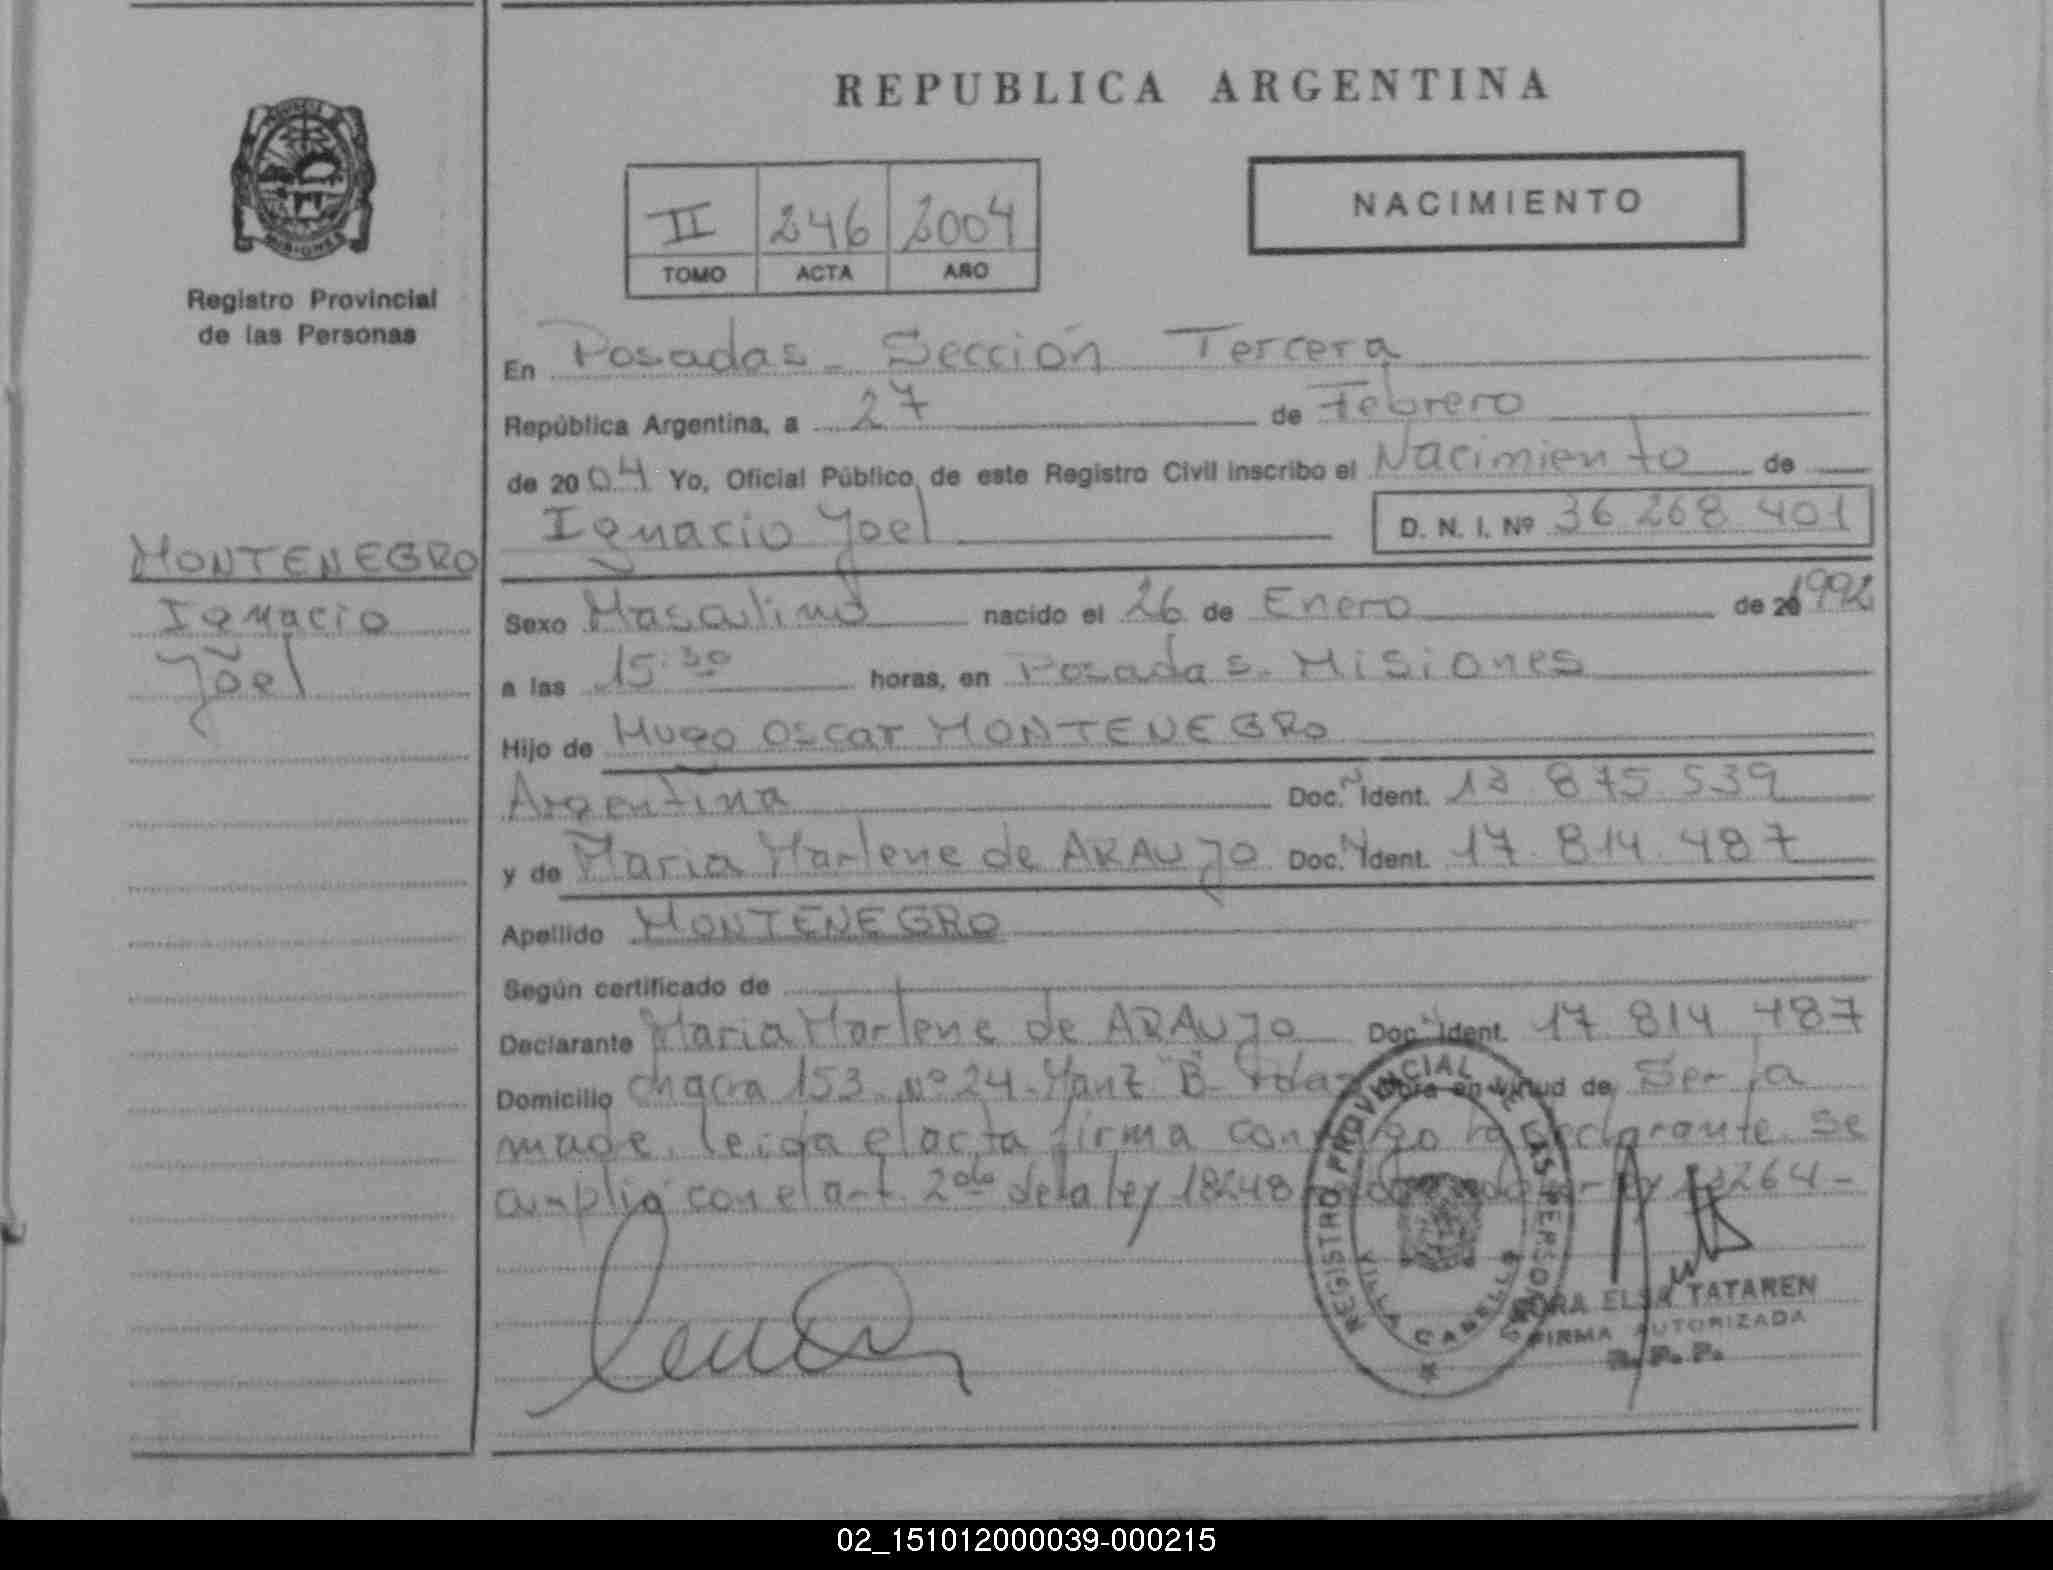 REPUBLICA ARGENTINA
NACIMIENTO
II 246 2004
TOMO ACTA AÑO
Registro Provincial
de las Personas
En Posadas - Sección Tercera
República Argentina, a 27 de Febrero
de 2004 Yo, Oficial Público de este Registro Civil inscribo el Nacimiento de
Ignacio Joel D. N. I. Nº 36 268 401
MONTENEGRO
Ignacio
Joel
Sexo Masculino nacido el 26 de Enero de 20 1992
a las 15:30 horas, en Posadas - Misiones
Hijo de Hugo Oscar MONTENEGRO
Argentina Doc. Ident. 13.875.539
y de Maria Marlene de ARAUJO Doc. Ident. 17.814.487
Apellido MONTENEGRO
Según certificado de
Declarante Maria Marlene de ARAUJO Doc. Ident. 17 814 487
Domicilio chacra 153 - Nº 24 - Manz "B" - Pdas Obra en virtud de Ser la
madre. leida el acta firma conmigo la declarante. Se
cumplió con el art. 2do de la ley 18248
REGISTRO PROVINCIAL DE LAS PERSONAS
VILLA CABELLO
ELSA TATAREN
FIRMA AUTORIZADA
R. P. P.
02_151012000039-000215